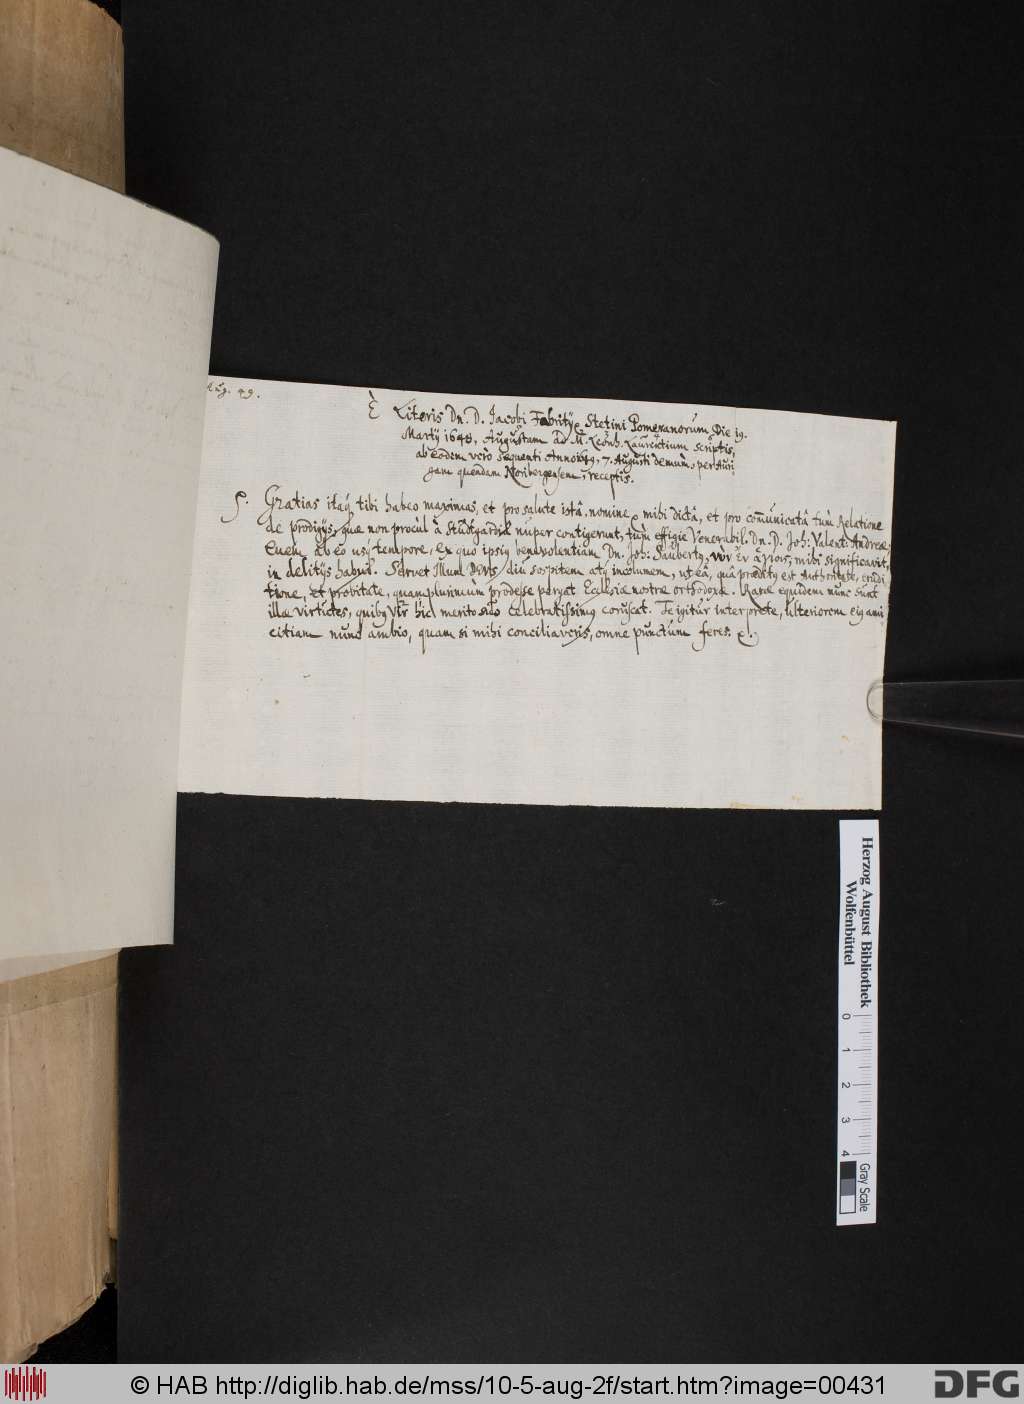 Aug. 49.
È Literis Dn. D. Jacobi Fabritij Stetini Pomeranorum Die 19.
Martij 1648, Augustam ad M. Leonh. Laurentium scriptis,
ab eodem vero sequenti Anno 1649, 7. Augusti demum, per Auri
gam quendam Noribergensem, receptis.
Gratias itaq tibi habeo maximas, et pro salute istâ, nomine mihi dictâ, et pro com̄unicatâ tum Relatione
de prodigijs, quæ non procul à Studtgardiâ nuper contigerunt, tùm effigie Venerabil. Dn. D. Joh: Valent: Andreæ;
Quem ab eo usq tempore, ex quo ipsius benevolentiam Dn. Joh: Saubertus, mihi significavit,
in delitijs habui. Servet Illum DEUS diu sospitem atq incolumem, ut eâ, quâ præditus est Authoritate, erudi
tione, et probitate, quamplurimùm prodesse pergat Ecclesiæ nostræ orthodoxæ. Raræ equidem nunc sunt
illæ virtutes, quibus Vir hic merito suo celebratissimus coruscat. Te igitur interprete, ulteriorem eius ami
citiam nunc ambio, quam si mihi conciliaveris, omne punctum feres.
Herzog August Bibliothek
Wolfenbüttel
0 1 2 3 4
Gray Scale
© HAB http://diglib.hab.de/mss/10-5-aug-2f/start.htm?image=00431
DFG